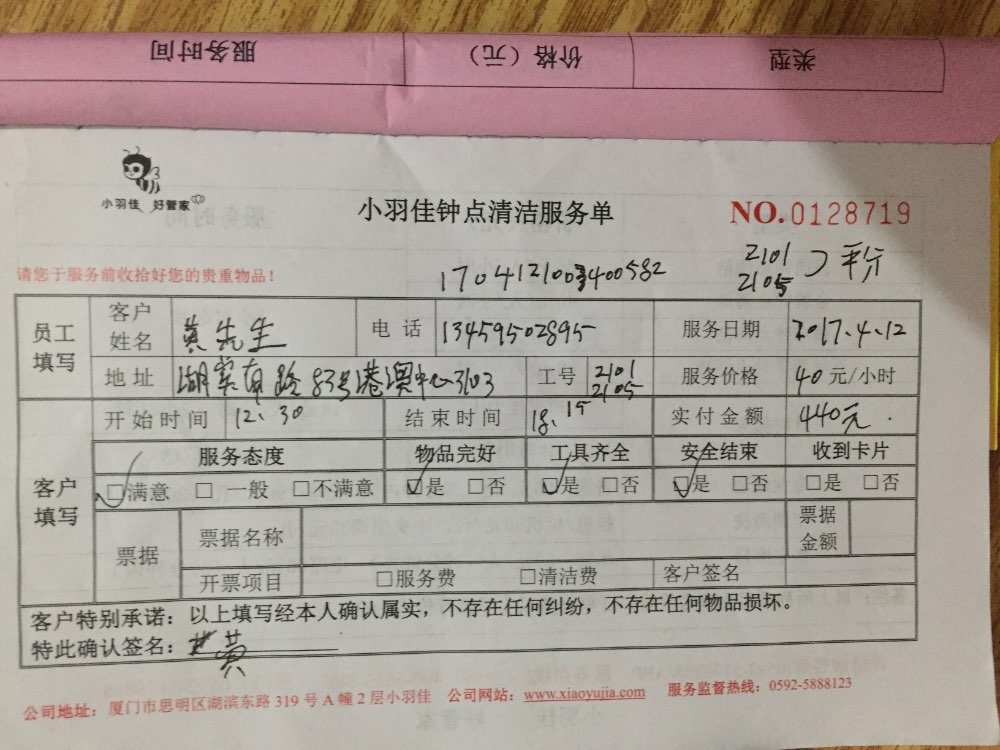 类型 价格（元） 服务时间
小羽佳 好管家
小羽佳钟点清洁服务单 NO.0128719
请您于服务前收拾好您的贵重物品！
2101
2105 平分
员工填写 客户姓名 黄先生 电话 13459502895 服务日期 2017.4.12
地址 路83号港澳中心3103 工号 2101 2105 服务价格 40元/小时
客户填写 开始时间 12.30 结束时间 18.15 实付金额 440元.
服务态度 物品完好 工具齐全 安全结束 收到卡片
☑满意 □一般 □不满意 ☑是 □否 ☑是 □否 ☑是 □否 □是 □否
票据 票据名称 票据金额
开票项目 □服务费 □清洁费 客户签名
客户特别承诺：以上填写经本人确认属实，不存在任何纠纷，不存在任何物品损坏。
特此确认签名：黄
公司地址：厦门市思明区湖滨东路319号A幢2层小羽佳 公司网站：www.xiaoyujia.com 服务监督热线：0592-5888123